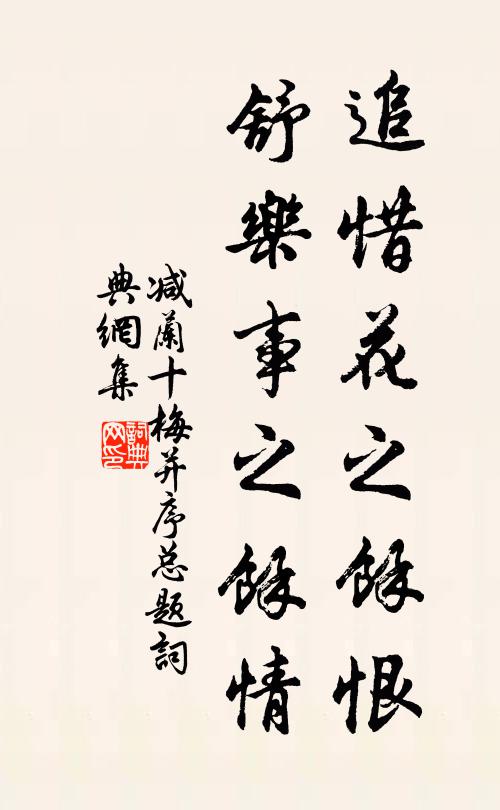 追惜花之餘恨
舒樂事之餘情
减蘭十梅并序总题詞
典網集
詞典网印